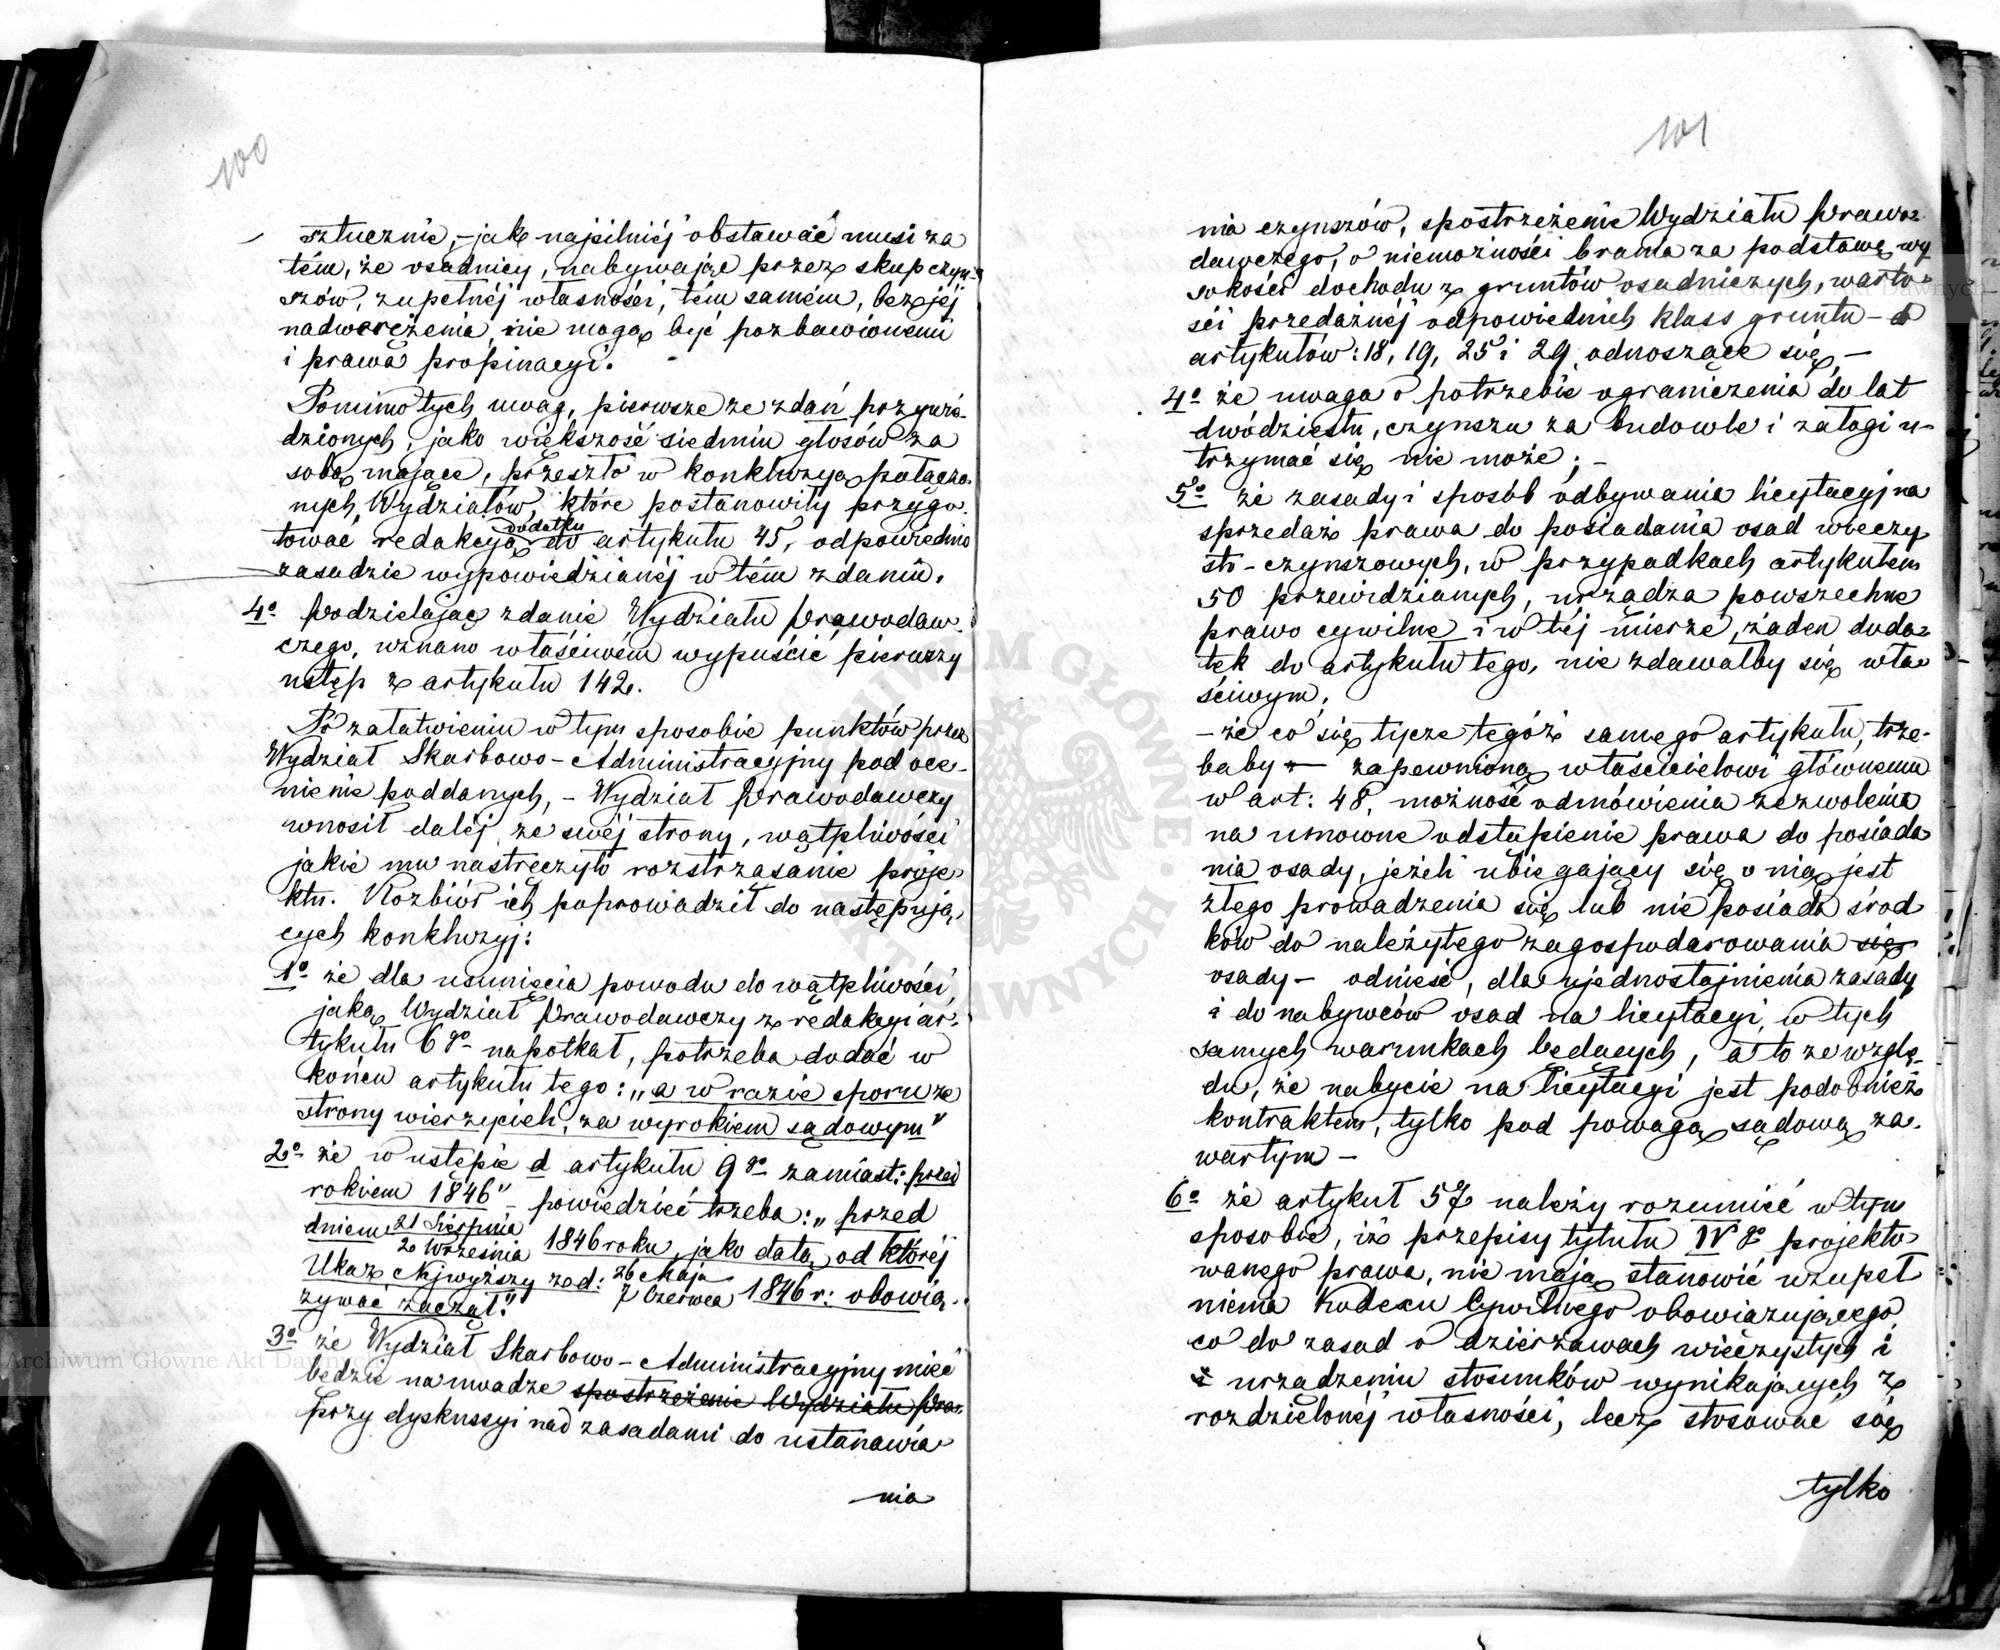 100
sztucznie, – jak najsilniéj obstawać musi za
tém, że osadnicy, nabywając przez skup czyn-
szów, zupełnéj własności, tém samém, bez jej
nadwerężenia, nie mogą być pozbawionemi
i prawa propinacyi.
Pomimo tych uwag, pierwsze ze zdań przywie-
dzionych, jako większość siedmiu głosów za
sobą mające, przeszło w konkluzyą połączo-
nych Wydziałów, które postanowiły przygo-
tować redakcyą dodatku do artykułu 45, odpowiednio
zasadzie wypowiedzianéj w tém zdaniu.
4o podzielając zdanie Wydziału Prawodaw-
czego, uznano właściwém wypuścić pierwszy
ustęp z artykułu 142.
Po załatwieniu w tym sposobie punktów przez
Wydział Skarbowo-Administracyjny pod oce-
nienie poddanych, – Wydział Prawodawczy
wnosił daléj ze swéj strony, wątpliwości
jakie mu nastręczyło roztrząsanie proje-
ktu. Rozbiór ich poprowadził do następują-
cych konkluzyj:
1o że dla usunięcia powodu do wątpliwości,
jaką Wydział Prawodawczy z redakcyi ar-
tykułu 6go napotkał, potrzeba dodać w
końcu artykułu tego: „a w razie sporu ze
strony wierzycieli, za wyrokiem sądowym"
2o że w ustępie d artykułu 9go zamiast: przed
rokiem 1846" – powiedzieć trzeba: „przed
dniem 21 Sierpnia / 2 Września 1846 roku, jako datą od któréj
Ukaz Najwyższy z d: 26 Maja / 7 Czerwca 1846 r: obowią-
zywać zaczął."
3o że Wydział Skarbowo-Administracyjny mieć
będzie na uwadze spostrzeżenie Wydziału Pra-
przy dyskussyi nad zasadami do ustanawia-
nia
101
nia czynszów, spostrzeżenie Wydziału Prawo-
dawczego, o niemożności brania za podstawę wy-
sokości dochodu z gruntów osadniczych, warto-
ści przedażnéj odpowiednich klass gruntu – do
artykułów: 18, 19, 25 i 29 odnoszące się, –
4o że uwaga o potrzebie ograniczenia do lat
dwódziestu, czynszu za budowle i załogi u-
trzymać się nie może; –
5o że zasady i sposób odbywania licytacyj na
sprzedaż prawa do posiadania osad wieczy-
sto-czynszowych, w przypadkach artykułem
50 przewidzianych, urządza powszechne
prawo cywilne i w téj mierze, żaden doda-
tek do artykułu tego, nie zdawałby się wła-
ściwym;
– że co się tycze tegóż samego artykułu, trze-
baby – zapewnioną właścicielowi głównemu
w art: 48, możność odmówienia zezwolenia
na umowne odstąpienie prawa do posiada-
nia osady, jeżeli ubiegający się o nią jest
złego prowadzenia się lub nie posiada środ-
ków do należytego zagospodarowania się
osady – odnieść, dla ujednostajnienia zasady
i do nabywców osad na licytacyi, w tych
samych warunkach będących, a to ze wzglę-
du, że nabycie na licytacyi jest podobnież
kontraktem, tylko pod powagą sądową za-
wartym –
6o że artykuł 57 należy rozumieć w tym
sposobie, iż przepisy tytułu IVgo projekto-
wanego prawa, nie mają stanowić uzupeł-
nienia Kodexu Cywilnego obowiązującego,
co do zasad o dzierżawach wieczystych i
urządzeniu stosunków wynikających z
rozdzielonéj własności, lecz stosować się
tylko
Archiwum Główne Akt Dawnych
ARCHIWUM GŁÓWNE AKT DAWNYCH